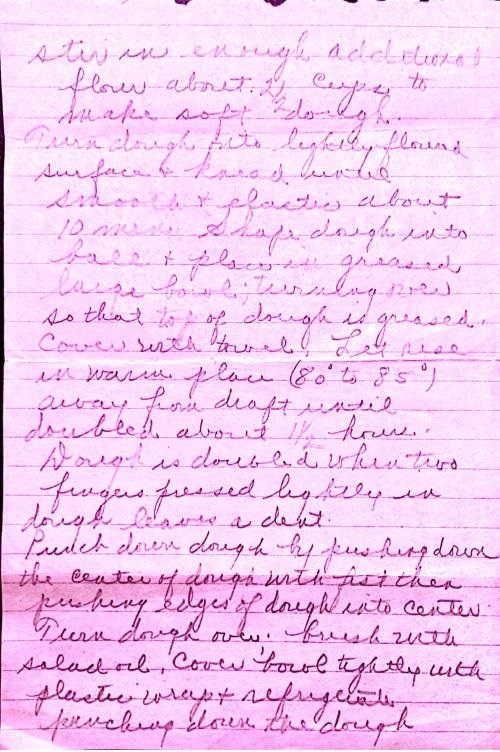 stir in enough additional
flour about 2 1/2 cups to
make soft dough.
Turn dough onto lightly floured
surface + knead until
smooth + elastic about
10 mins Shape dough into
ball + place in greased
large bowl, turning over
so that top of dough is greased.
Cover with towel. Let rise
in warm place (80° to 85°)
away from draft until
doubled about 1 1/2 hours.
Dough is doubled when two
fingers pressed lightly in
dough leaves a dent.
Punch down dough by pushing down
the center of dough with fist then
pushing edges of dough into center
Turn dough over. brush with
salad oil. Cover bowl tightly with
plastic wrap + refrigerate
punching down the dough